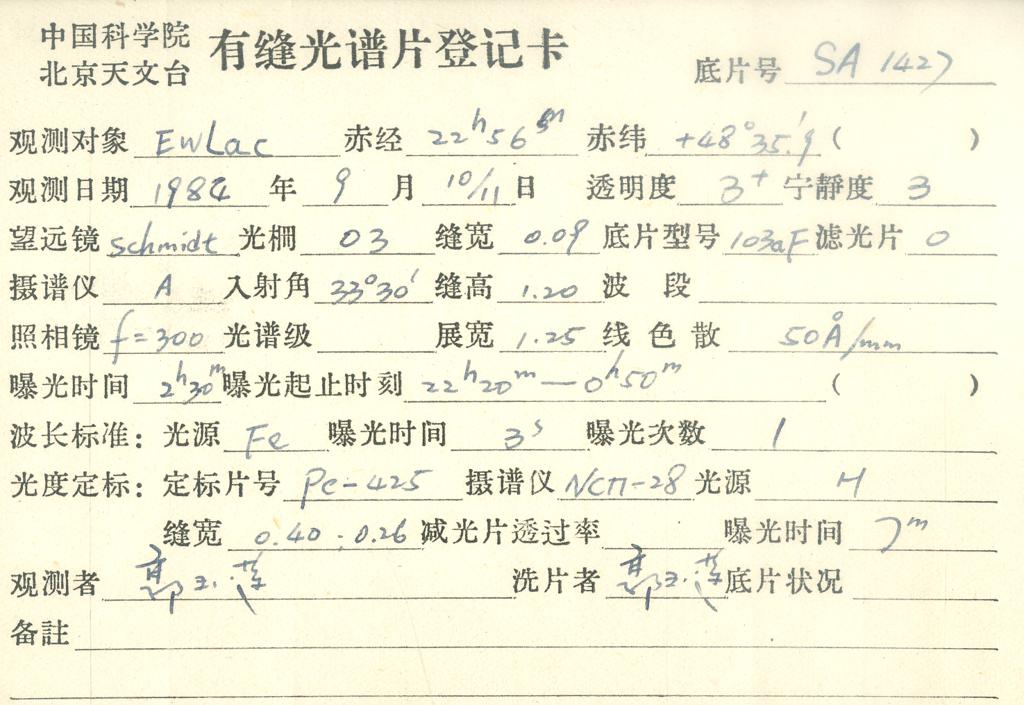 中国科学院
北京天文台 有缝光谱片登记卡 底片号 SA 1427
观测对象 EWLac 赤经 22ʰ56ᵐ 赤纬 +48°35.'9 ( )
观测日期 1984 年 9 月 10/11 日 透明度 3⁺ 宁静度 3
望远镜 schmidt 光栅 03 缝宽 0.09 底片型号 103aF 滤光片 0
摄谱仪 A 入射角 33°30' 缝高 1.20 波 段
照相镜 f=300 光谱级 展宽 1.25 线 色 散 50Å/mm
曝光时间 2ʰ30ᵐ 曝光起止时刻 22ʰ20ᵐ—0ʰ50ᵐ ( )
波长标准: 光源 Fe 曝光时间 3ˢ 曝光次数 1
光度定标: 定标片号 Pc-425 摄谱仪 NCП-28 光源 H
缝宽 0.40 ; 0.26 减光片透过率 曝光时间 7ᵐ
观测者 郭玉莲 洗片者 郭玉莲 底片状况
备註